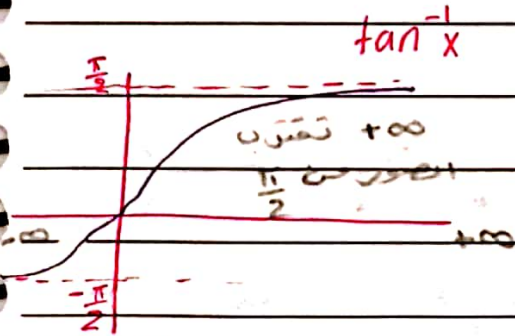 tan⁻¹ x
π/2
+∞ تقترب
الصور من π/2
-∞
+∞
-π/2